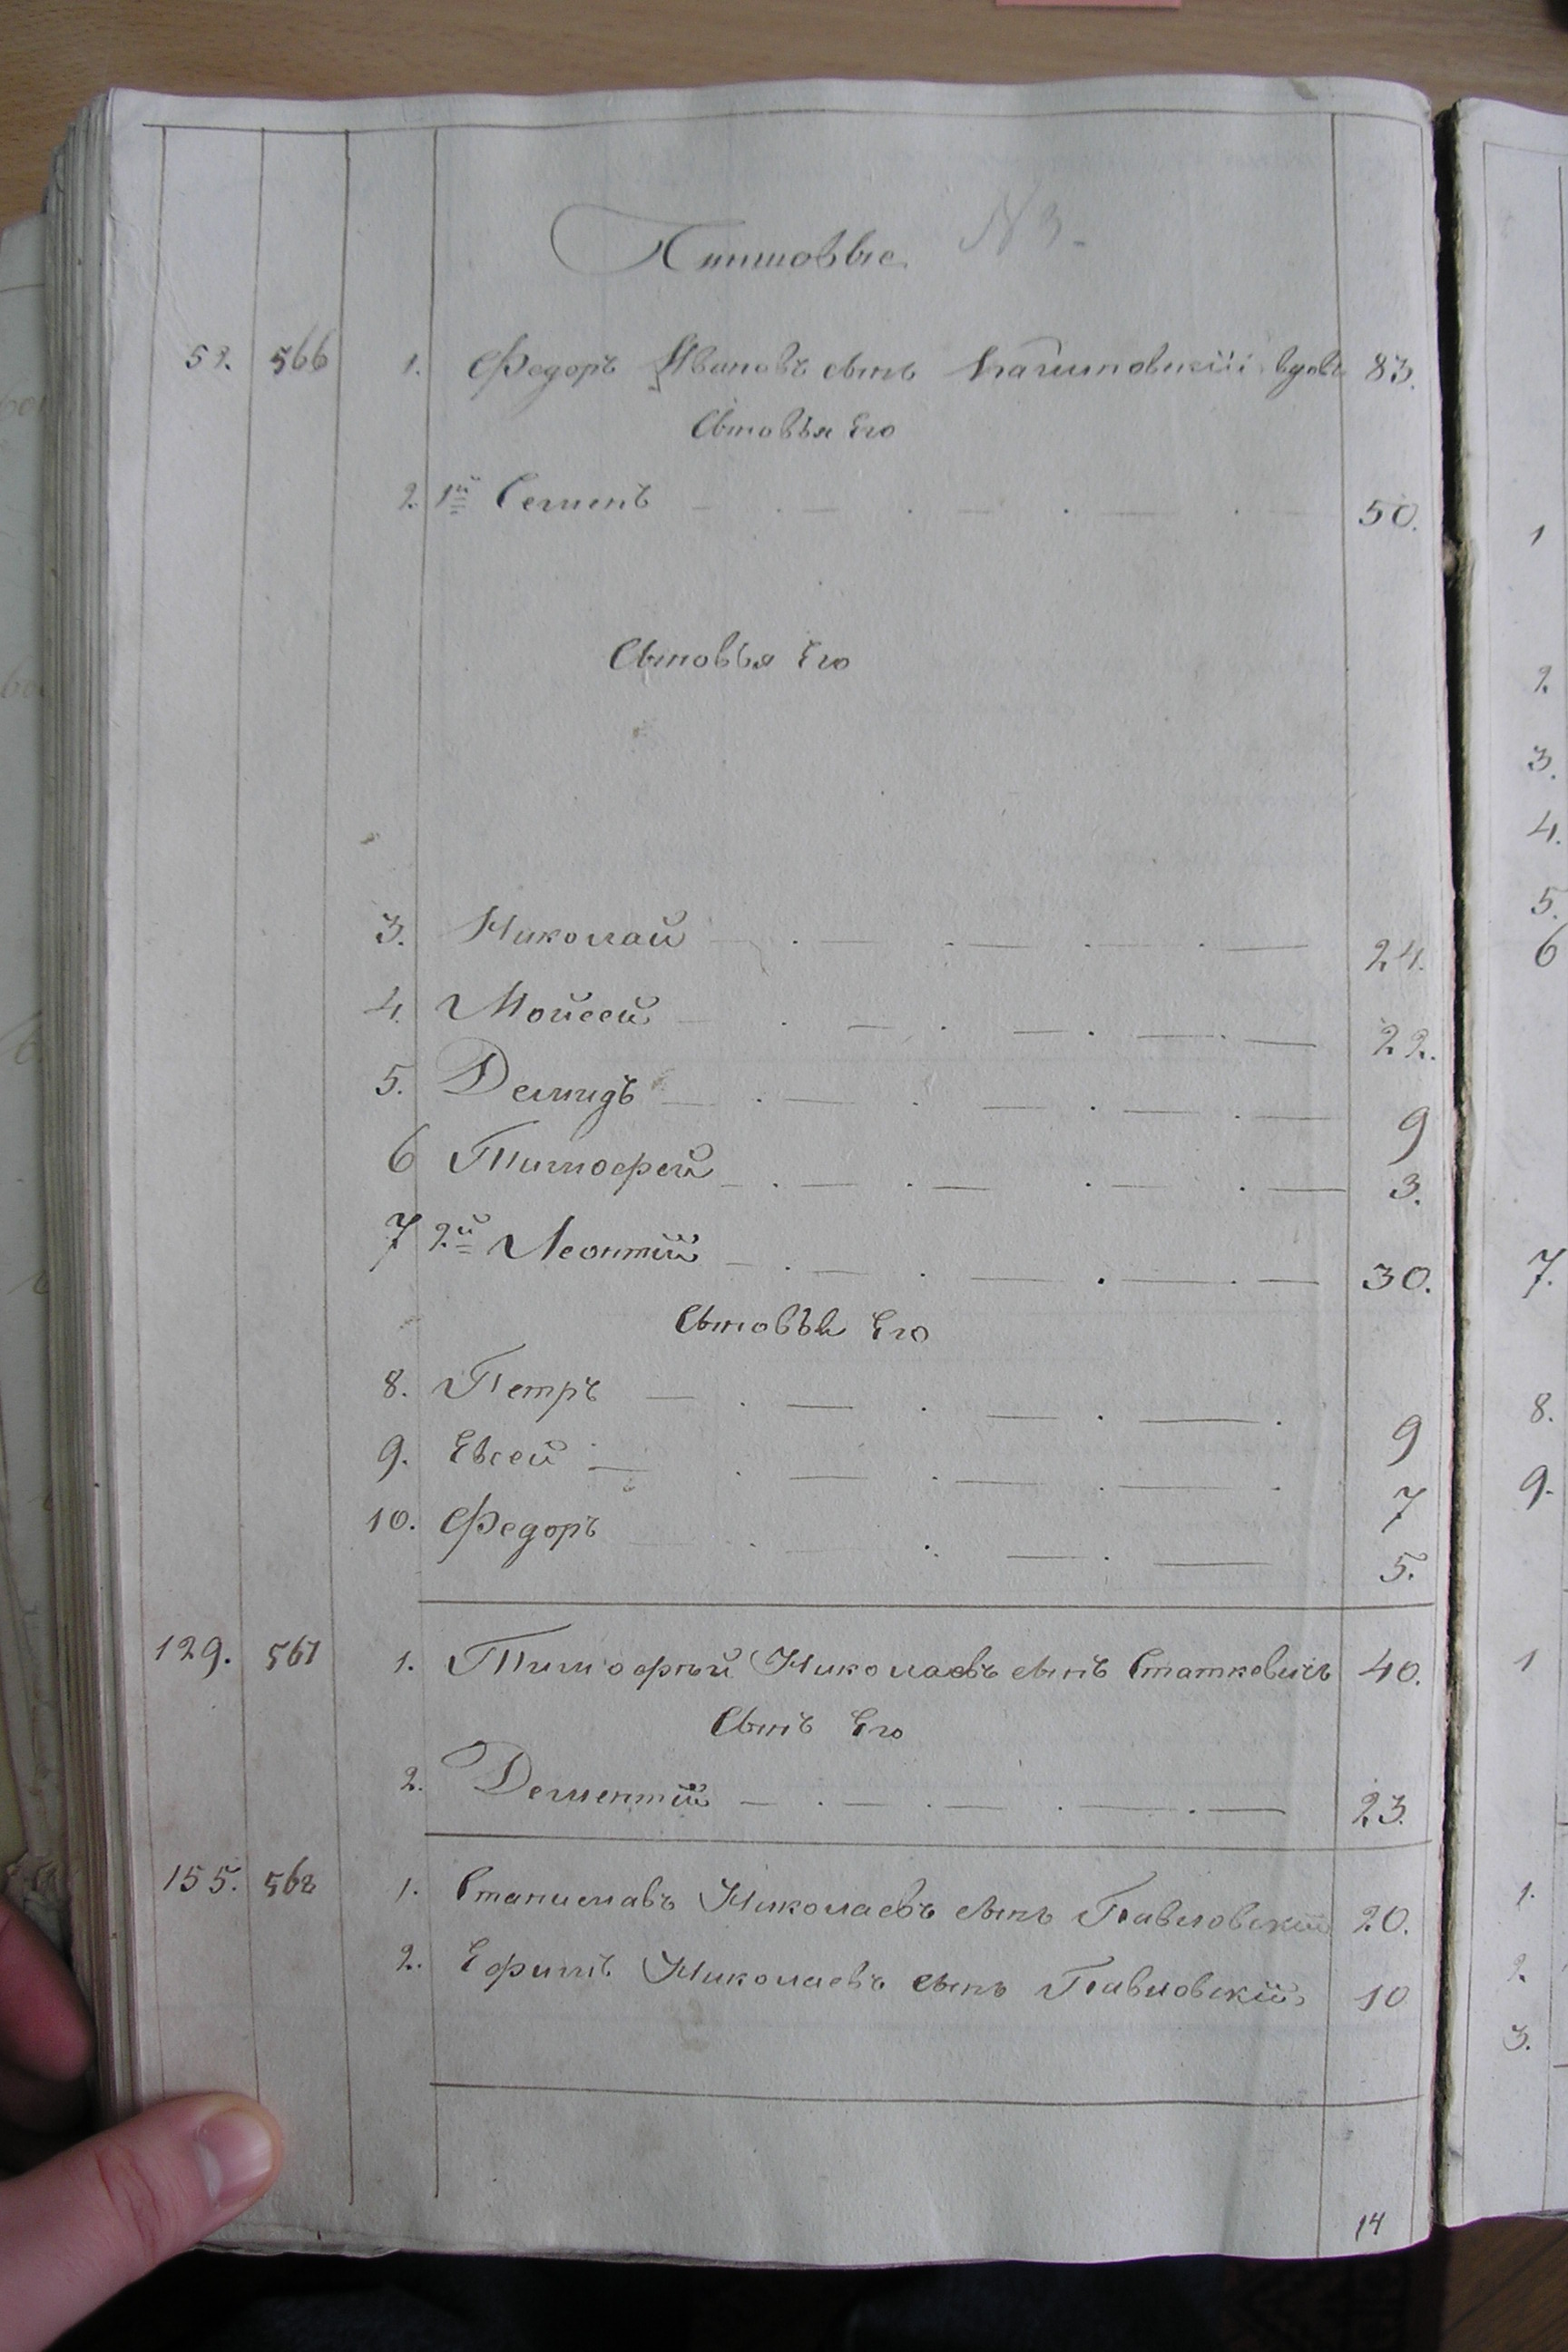 Липшовые N 3.
52. 566 1. Федоръ Ивановъ сынъ вдовъ 83.
Сыновья Его
2. 1й Семенъ 50.
Сыновья Его
3. Николай 24.
4. Мойсей 22.
5. Демидъ 9
6 Тимофей 3.
7 2й Леонтій 30.
Сыновья Его
8. Петръ 9
9. Евсей 7
10. Федоръ 5.
129. 567 1. Тимофѣй Николаевъ сынъ Статкевичъ 40.
Сынъ Его
2. Дементій 23.
155. 568 1. Станиславъ Николаевъ сынъ Павловскій 20.
2. Ефимъ Николаевъ сынъ Павловскій 10
14
1
2.
3.
4.
5.
6
7.
8.
9.
1
1.
2.
3.